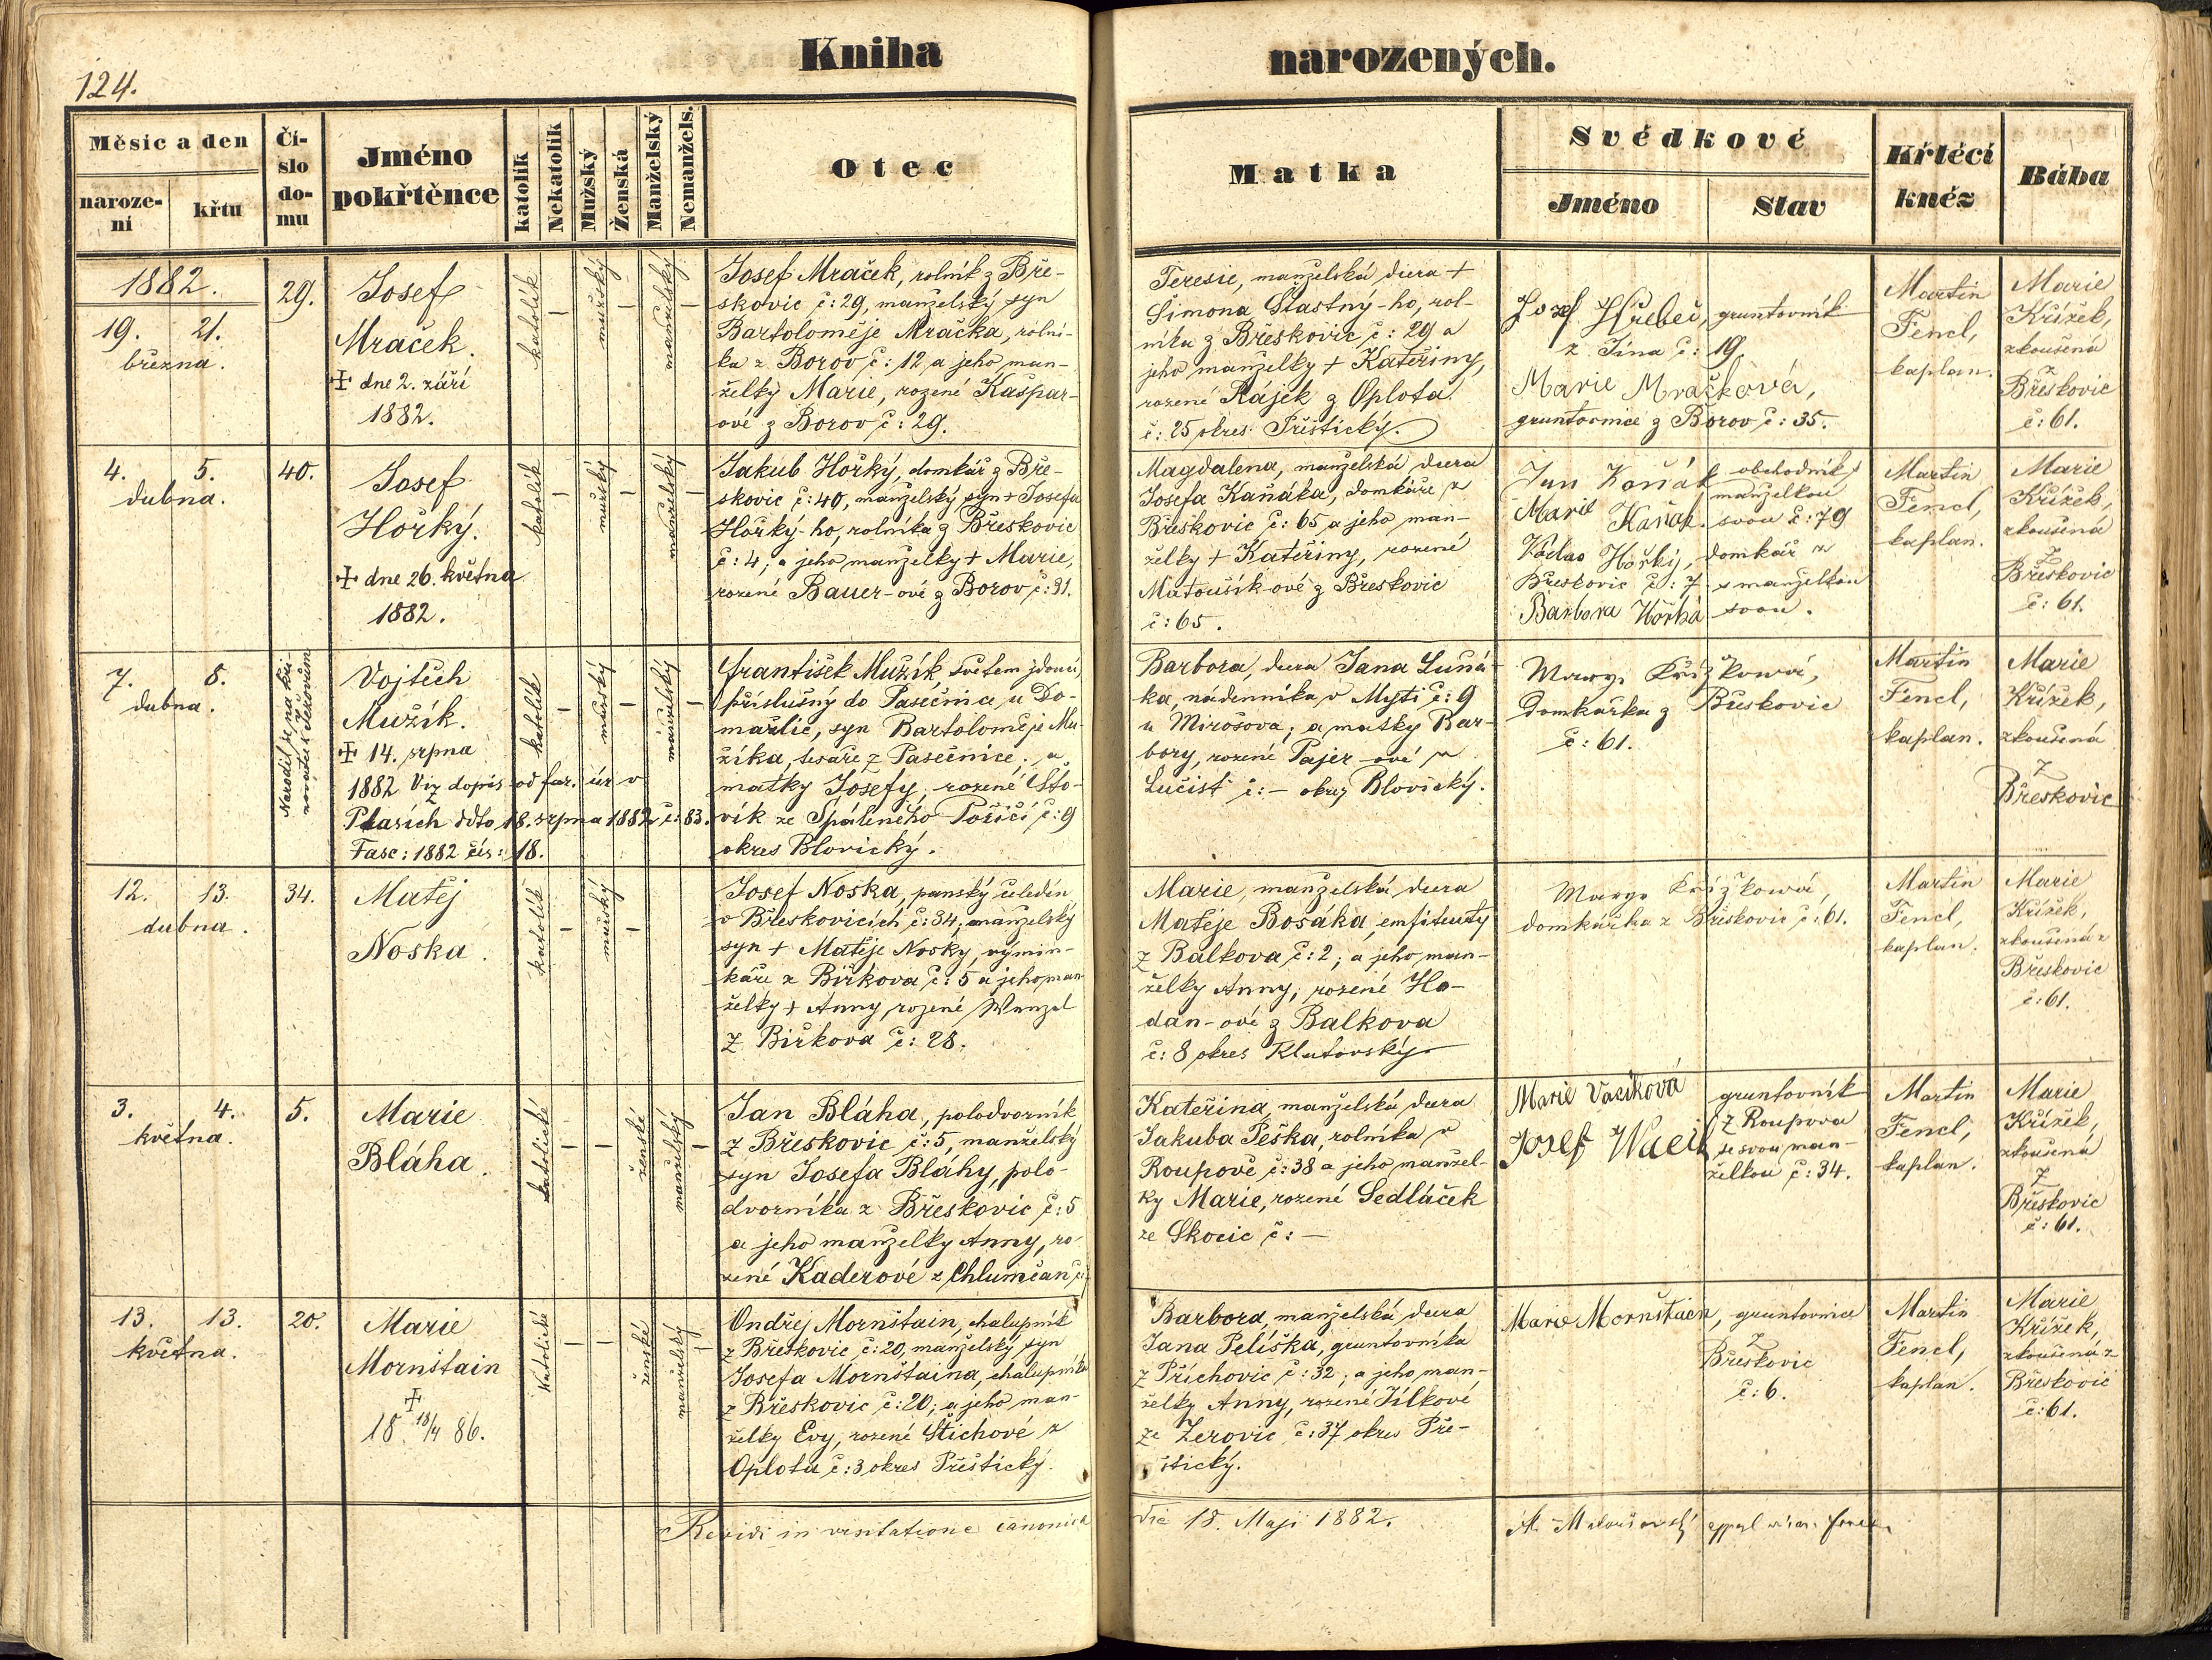 124.
Kniha narozených.
Měsíc a den
naroze-
ní
křtu
Čí-
slo
do-
mu
Jméno
pokřtěnce
katolík
Nekatolík
Mužský
Ženská
Manželský
Nemanžels.
Otec
Matka
Svědkové
Jméno
Stav
Křtící
kněz
Bába
1882.
19. 21.
března.
29.
Josef
Mraček.
+ dne 2. září
1882.
katolík
–
mužský
–
manželský
–
Josef Mraček, rolník z Bře-
skovic č: 29, manželský syn
Bartoloměje Mračka, rolní-
ka z Borov č: 12 a jeho man-
želky Marie, rozené Kašpar-
ové z Borov č: 29.
Teresie, manželská dcera +
Simona Šťastný-ho, rol-
níka z Břeskovic č: 29 a
jeho manželky + Kateřiny,
rozené Rájek z Oplota
č: 25 okres Přeštický.
Josef Hřebec, gruntovník
z Jína č: 19
Marie Mračková,
gruntovnice z Borov č: 35.
Martin
Fencl,
kaplan.
Marie
Křížek,
zkoušená
z
Břeskovic
č: 61.
4. 5.
dubna.
40.
Josef
Hořký.
+ dne 26. května
1882.
katolík
–
mužský
–
manželský
–
Jakub Hořký, domkář z Bře-
skovic č: 40, manželský syn + Josefa
Hořký-ho, rolníka z Břeskovic
č: 4, a jeho manželky + Marie,
rozené Bauer-ové z Borov č: 31.
Magdalena, manželská dcera
Josefa Kaňáka, domkáře z
Břeskovic č: 65 a jeho man-
želky + Kateřiny, rozené
Matoušík-ové z Břeskovic
č: 65.
Jan Koňák obchodník s
manželkou
Marie Kaňak. svou č: 79
Václav Hořký, domkář z
Břeskovic č: 7 s manželkou
Barbora Hořká svou.
Martin
Fencl,
kaplan.
Marie
Křížek,
zkoušená
z
Břeskovic
č: 61.
7. 8.
dubna.
Narodil se na ko-
Vojtěch
Mužík.
+ 14. srpna
1882 Viz dopis od far. úr v
Plasích ddto 18. srpna 1882 č: 83.
Fasc: 1882 čís: 18.
katolík
–
mužský
–
manželský
–
František Mužík, světem jdoucí,
příslušný do Pasečnice u Do-
mažlic, syn Bartoloměje Mu-
žíka, tesaře z Pasečnice; a
matky Josefy, rozené Što-
vík ze Spáleného Poříčí č: 9
okres Blovický.
Barbora, dcera Jana Luňá-
ka, nádenníka v Myti č: 9
u Mirošova; a matky Bar-
bory, rozené Pajer-ové z
Lučišt č: – okres Blovický.
Maryi Křížkowá,
Domkářka z Břeskovic
č: 61.
Martin
Fencl,
kaplan.
Marie
Křížek,
zkoušená
z
Břeskovic
12. 13.
dubna.
34.
Matěj
Noska.
katolík
–
mužský
–
Josef Noska, panský čeledín
v Břeskovicích č: 34, manželský
syn + Matěje Nosky, výmin-
káře z Bířkova č: 5 a jeho man-
želky + Anny, rozené Wanzel
z Bířkova č: 28.
Marie, manželská dcera
Matěje Bosáka, emfiteuty
z Balkova č: 2; a jeho man-
želky Anny, rozené Ho-
dan-ové z Balkova
č: 8 okres Klatovský.
Marye Křížkowá,
domkářka z Břeskovic č: 61.
Martin
Fencl,
kaplan.
Marie
Křížek,
zkoušená z
Břeskovic
č: 61.
3. 4.
května.
5.
Marie
Bláha.
katolické
–
–
ženské
manželský
–
Jan Bláha, polodvorník
z Břeskovic č: 5, manželský
syn Josefa Bláhy, polo-
dvorníka z Břeskovic č: 5
a jeho manželky Anny, ro-
zené Kaderové z Chlumčan č:
Kateřina, manželská dcera
Jakuba Peška, rolníka v
Roupově č: 38 a jeho manžel-
ky Marie, rozené Sedláček
ze Skočic č: –
Marie Vacíková gruntovník
z Roupova
Josef Waciík se svou man-
želkou č: 34.
Martin
Fencl,
kaplan.
Marie
Křížek,
zkoušená
z
Břeskovic
č: 61.
13. 13.
května.
20.
Marie
Mornštain
+
18 18/4 86.
Katolické
–
–
ženské
manželský
–
Ondřej Mornštain, chalupník
z Břeskovic č: 20, manželský syn
Josefa Mornštaina, chalupníka
z Břeskovic č: 20; a jeho man-
želky Evy, rozené Štichové z
Oplotu č: 3 okres Přeštický.
Barbora, manželská dcera
Jana Peliška, gruntovníka
z Příchovic č: 32; a jeho man-
želky Anny, rozené Jílkové
ze Zerovic č: 37 okres Pře-
štický.
Marie Mornštaen, gruntovnice
z
Břeskovic
č: 6.
Martin
Fencl,
kaplan.
Marie
Křížek,
zkoušená z
Břeskovic
č: 61.
Revidi in visitatione canonica die 18. Maji 1882.